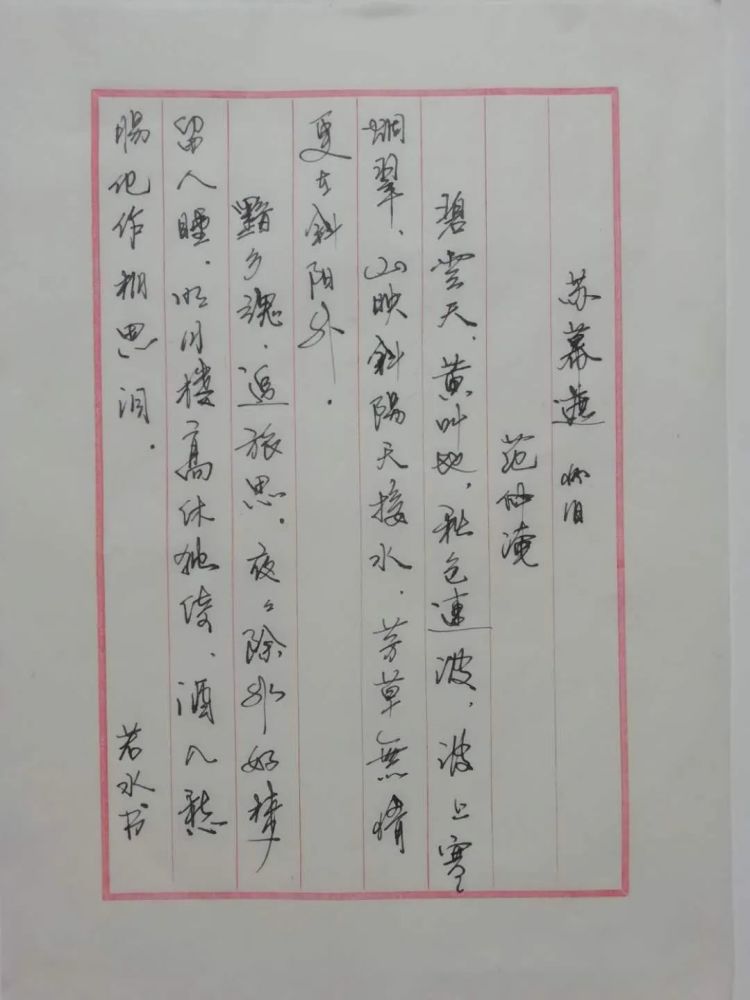 苏幕遮 怀旧
范仲淹
碧雲天，黄叶地，秋色連波，波上寒
烟翠．山映斜陽天接水．芳草無情
更在斜阳外．
黯乡魂．追旅思．夜々除非好梦
留人睡．明月楼高休独倚．酒入愁
腸化作相思泪．
若水书